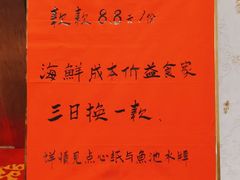 款款8.8元/份
海鮮成本价益食家
三日换一款、
详情见点心纸与魚池水牌